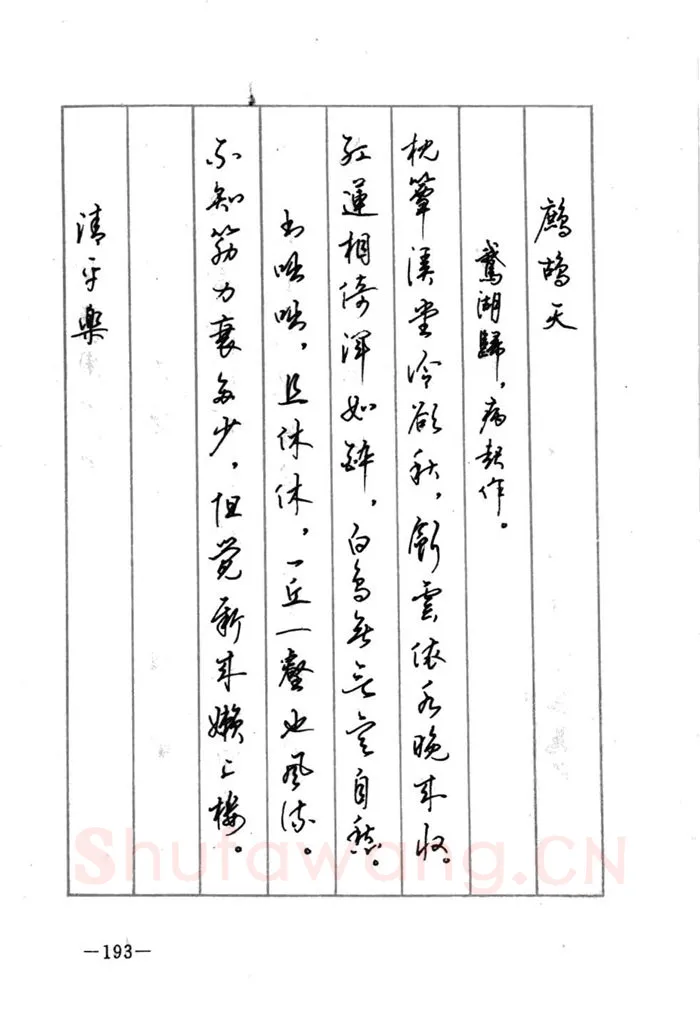 鷓鴣天
鵞湖歸，病起作。
枕簟溪堂冷欲秋，斷雲依水晚來收。
紅蓮相倚渾如醉，白鳥無言定自愁。
书咄咄，且休休，一丘一壑也風流。
不知筋力衰多少，但覺新來懶上樓。
清平樂
Shufawang.CN
—193—